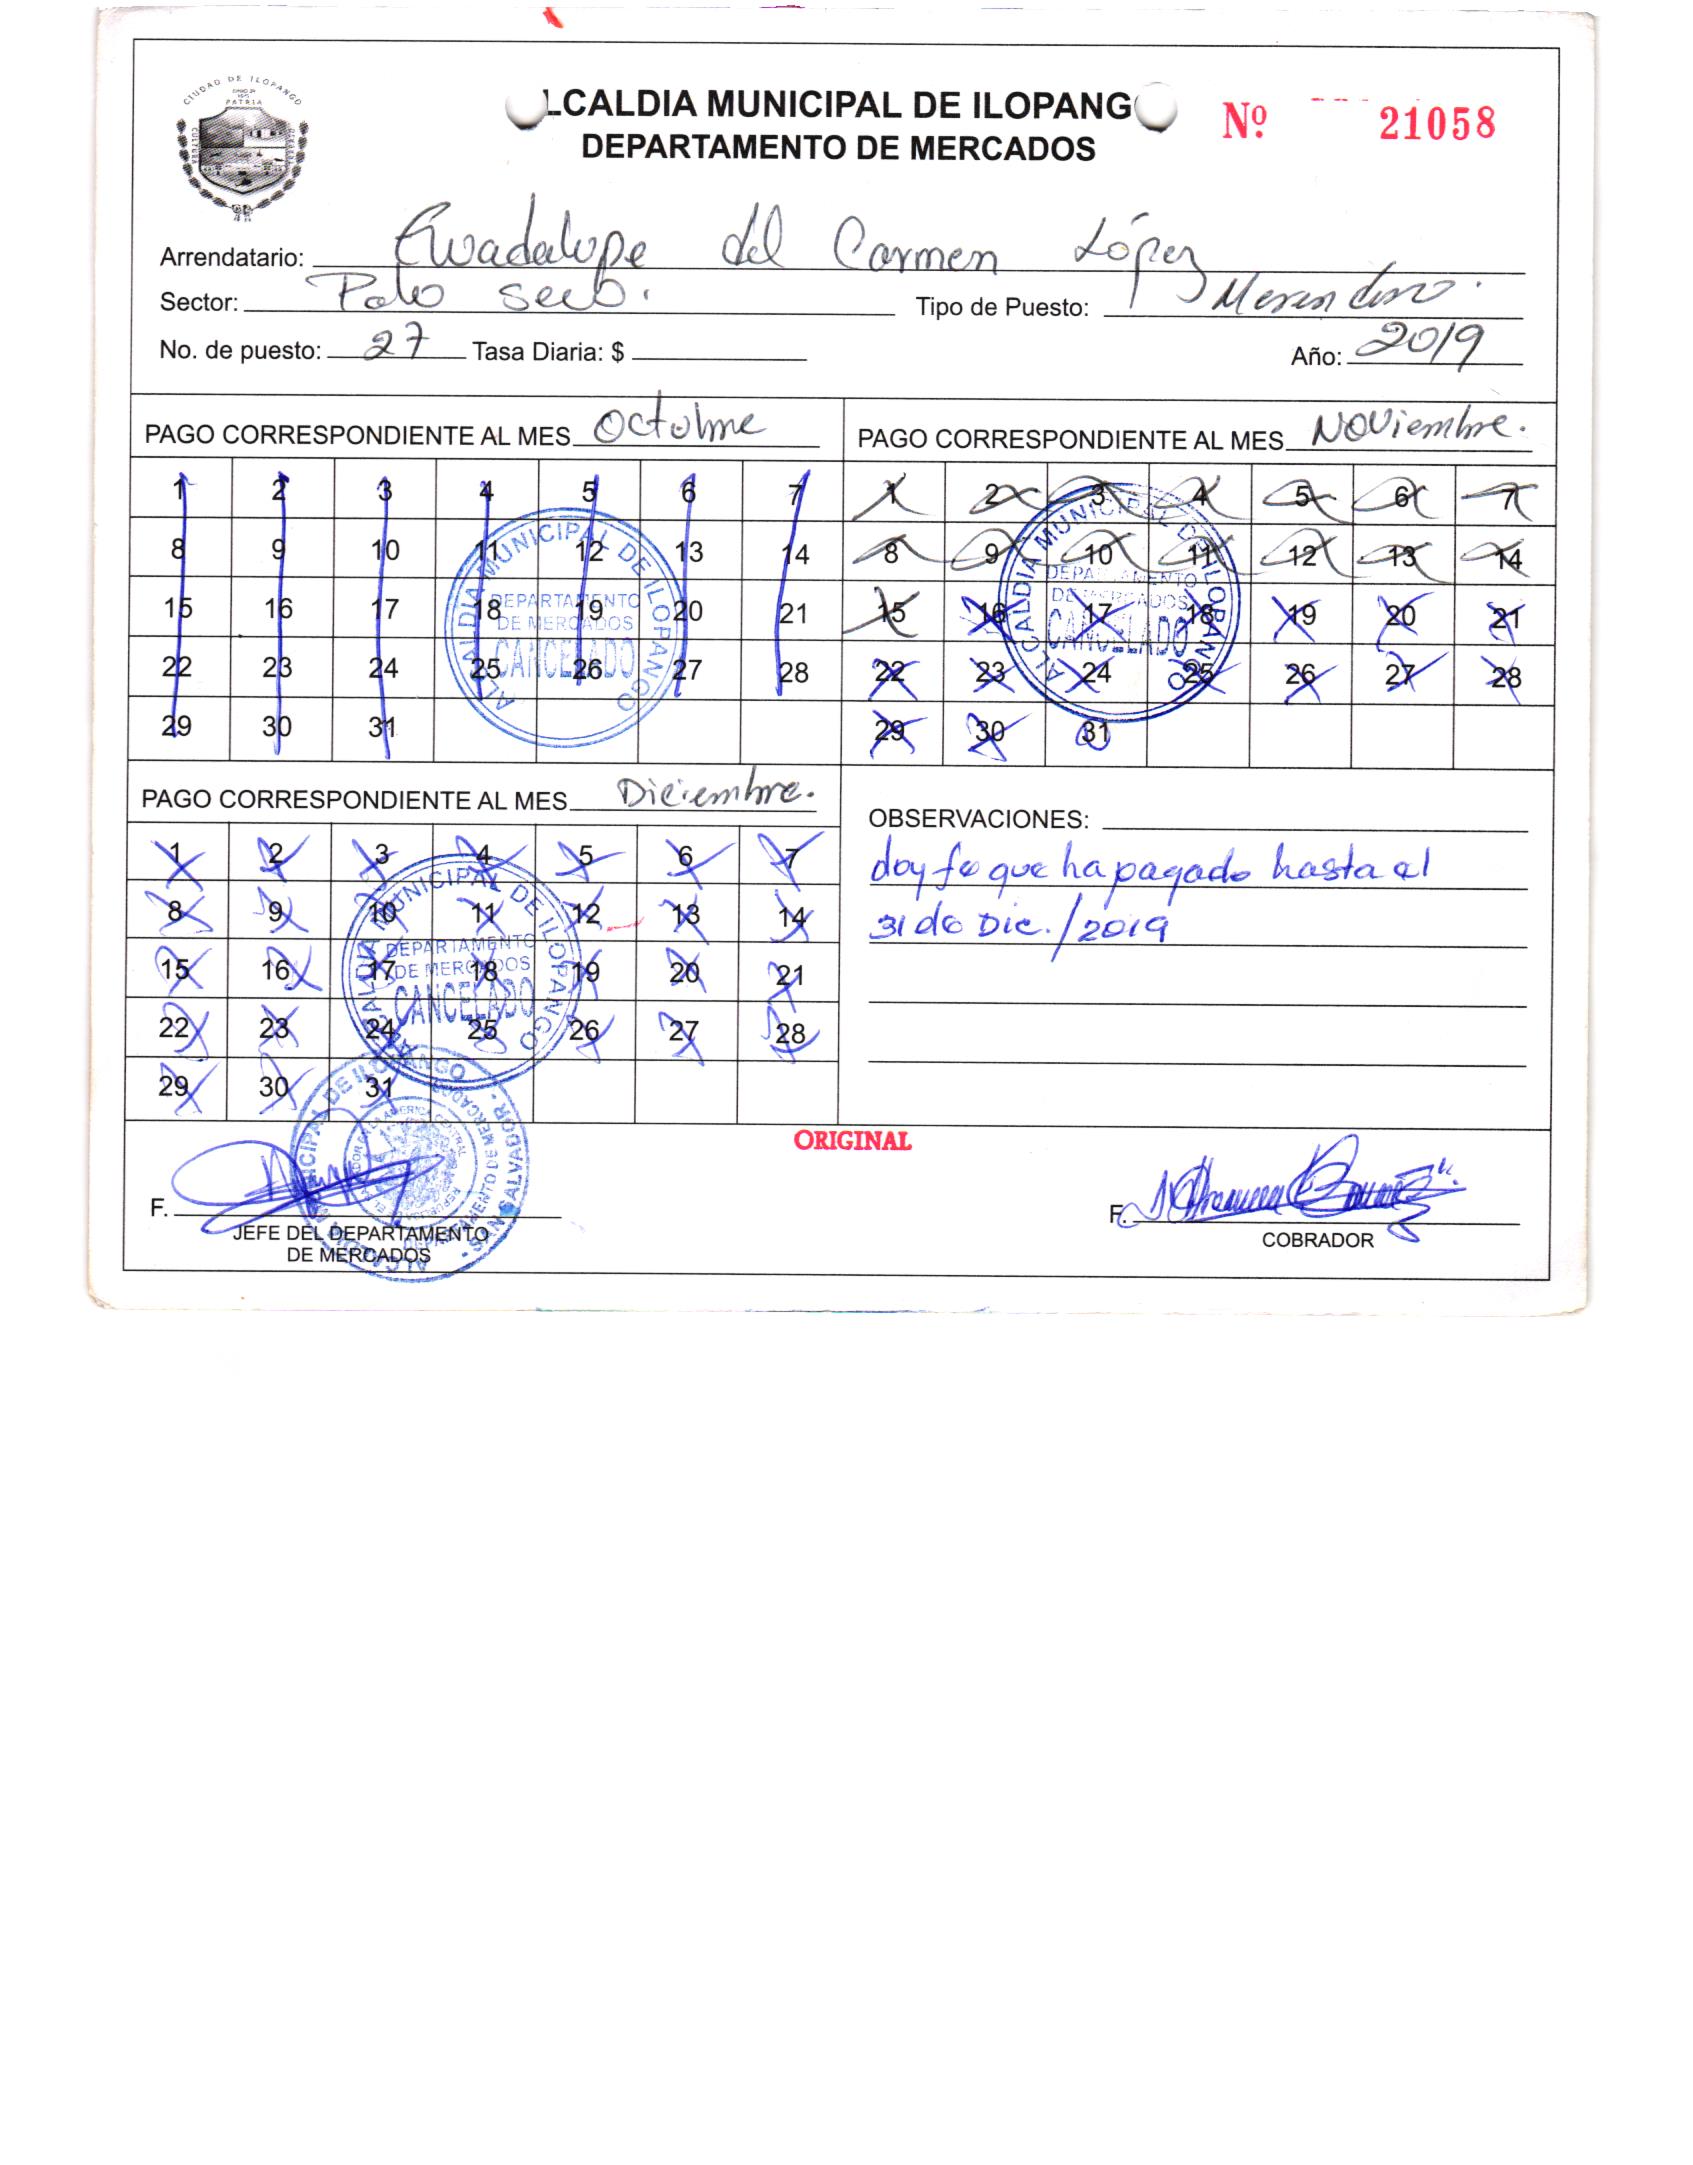 CIUDAD DE ILOPANGO
PATRIA
CULTURA
LCALDIA MUNICIPAL DE ILOPANG
Nº 21058
DEPARTAMENTO DE MERCADOS
Arrendatario: Guadalupe del Carmen López
Sector: Palo seco. Tipo de Puesto:
No. de puesto: 27 Tasa Diaria: $ Año: 2019
PAGO CORRESPONDIENTE AL MES Octubre
1 2 3 4 5 6 7
8 9 10 11 12 13 14
15 16 17 18 19 20 21
22 23 24 25 26 27 28
29 30 31
ALCALDIA MUNICIPAL DE ILOPANGO
DEPARTAMENTO
DE MERCADOS
CANCELADO
PAGO CORRESPONDIENTE AL MES Noviembre.
1 2 3 4 5 6 7
8 9 10 11 12 13 14
15 16 17 18 19 20 21
22 23 24 25 26 27 28
29 30 31
ALCALDIA MUNICIPAL DE ILOPANGO
DEPARTAMENTO
DE MERCADOS
CANCELADO
PAGO CORRESPONDIENTE AL MES Diciembre.
1 2 3 4 5 6 7
8 9 10 11 12 13 14
15 16 17 18 19 20 21
22 23 24 25 26 27 28
29 30 31
ALCALDIA MUNICIPAL DE ILOPANGO
DEPARTAMENTO
DE MERCADOS
CANCELADO
OBSERVACIONES:
doy fe que ha pagado hasta el
31 de Dic./2019
ORIGINAL
F.
JEFE DEL DEPARTAMENTO
DE MERCADOS
ALCALDIA MUNICIPAL DE ILOPANGO
DEPARTAMENTO DE MERCADOS
SAN SALVADOR
F.
COBRADOR